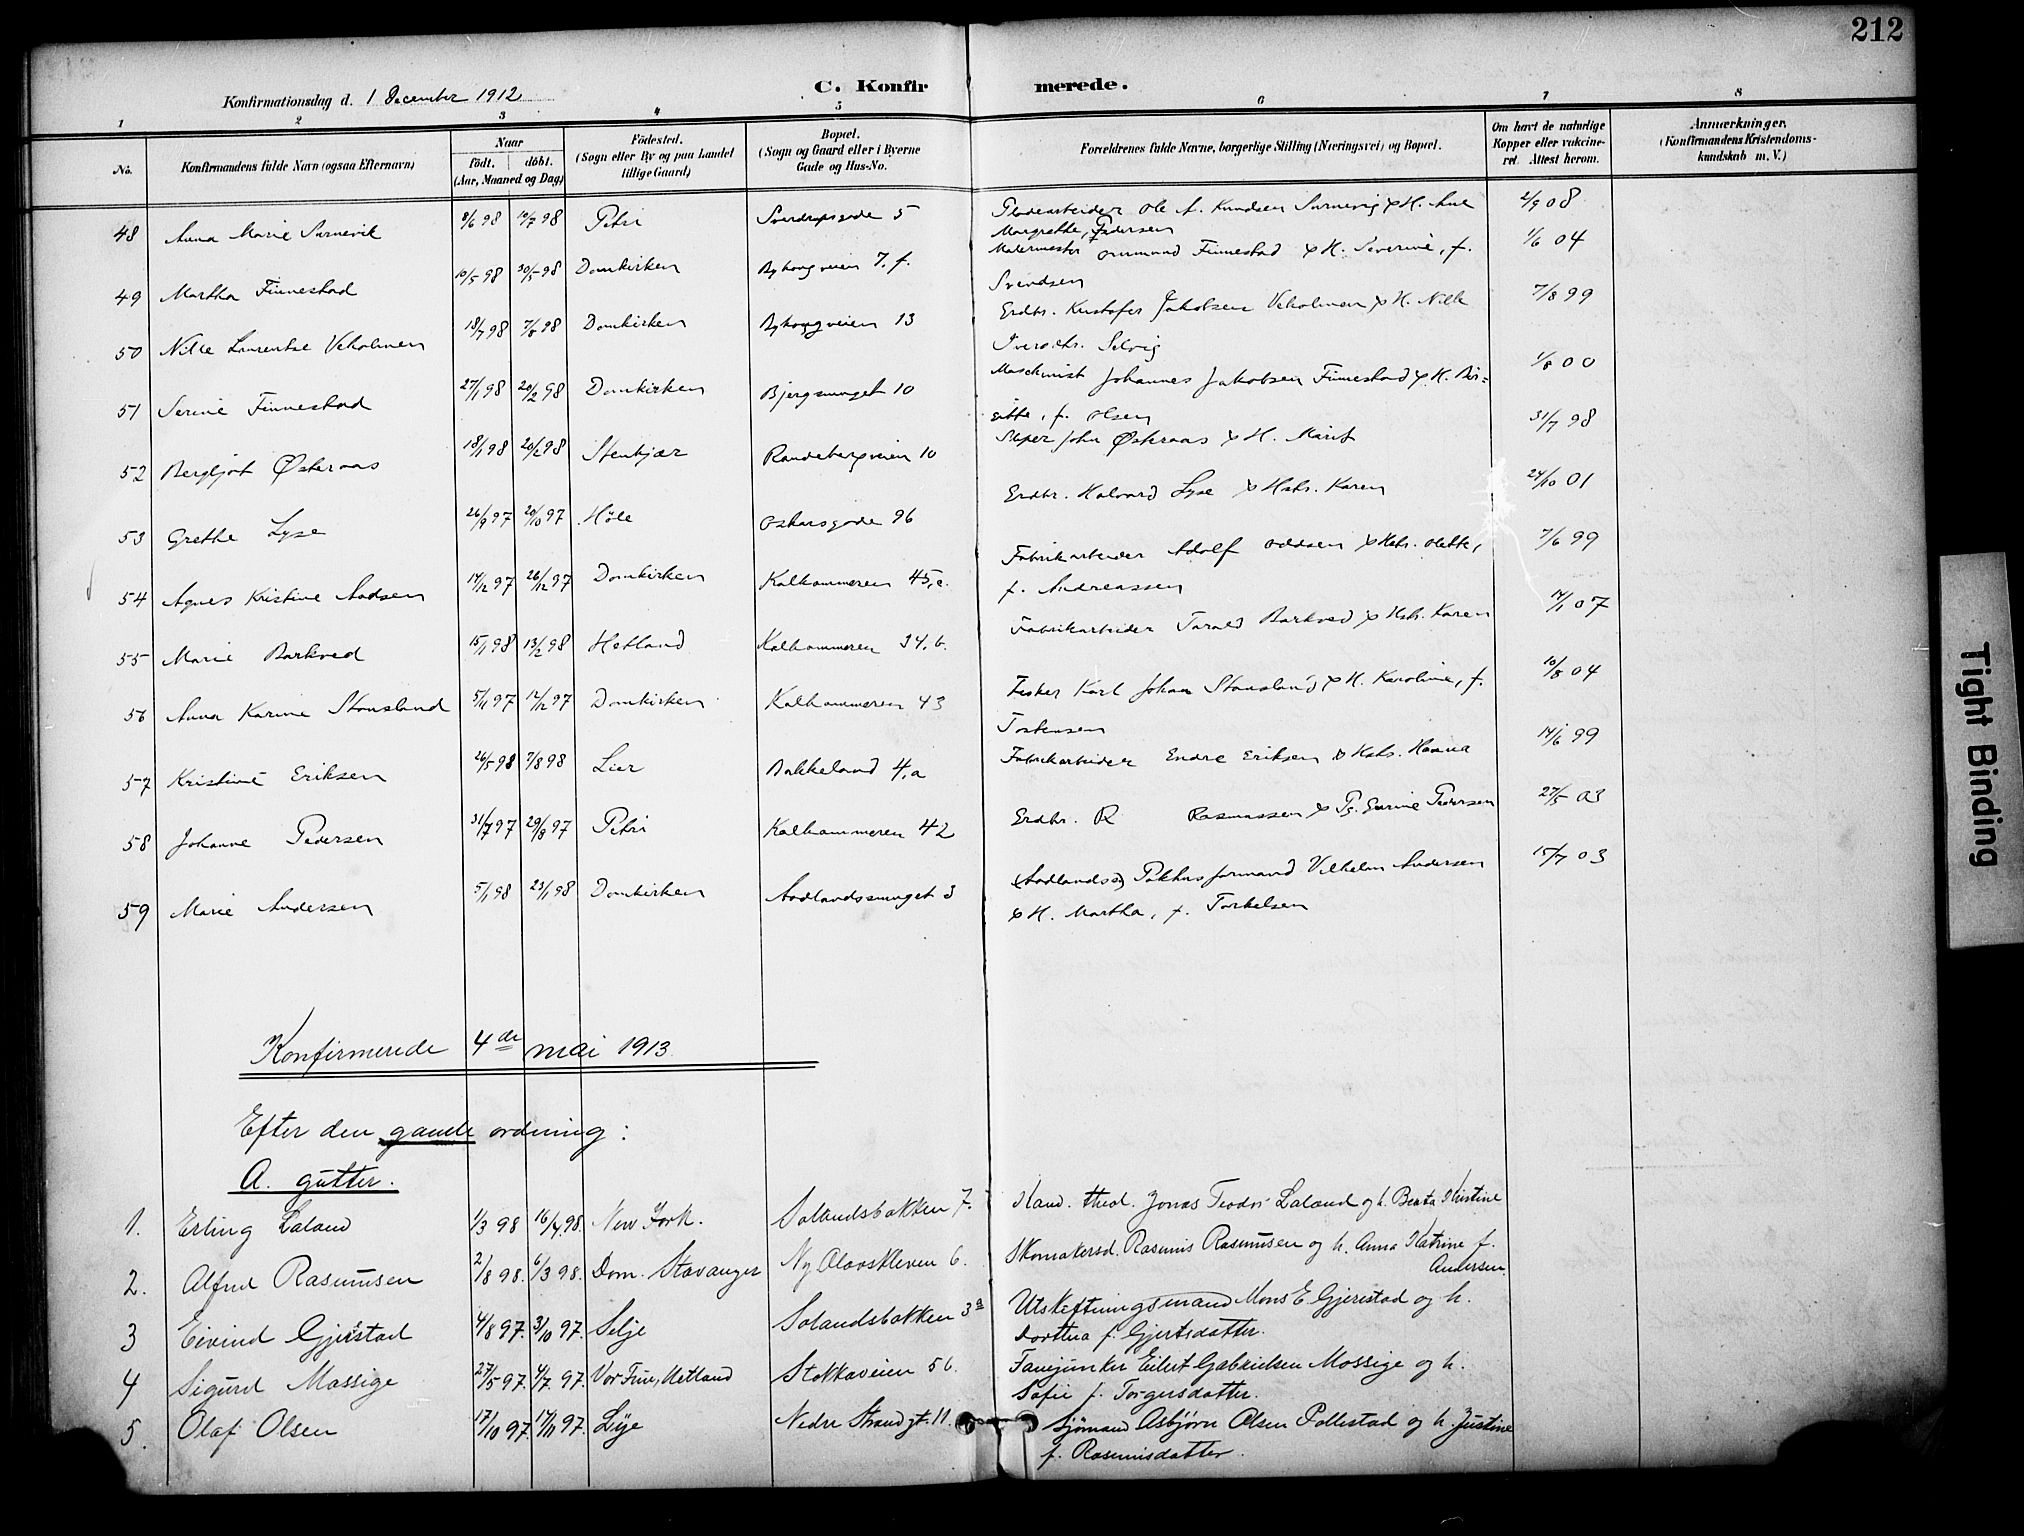 212
Konfirmationsdag d. 1 December 1912
C. Konfirmerede.
1 2 3 4 5 6 7 8
No.
Konfirmandens fulde Navn (ogsaa Efternavn)
Naar
födt. döbt.
(Aar, Maaned og Dag)
Födested.
(Sogn eller By og paa Landet
tillige Gaard)
Bopæl.
(Sogn og Gaard eller i Byerne
Gade og Hus-No.
Forældrenes fulde Navne, borgerlige Stilling (Næringsvei) og Bopæl.
Om havt de naturlige
Kopper eller vakcine-
ret. Attest herom.
Anmærkninger.
(Konfirmandens Kristendoms-
kundskab m. V.)
48 Anna Marie Surnevik 8/6 98 10/7 98 Petri Sverdrupsgade 5 Ole A. Knudsen Surnevig & H. Ane 2/9 08
Margrethe, Pedersen
49 Martha Finnestad 10/5 98 30/5 98 Domkirken Byhaugveien 7.f. Malermester Ommund Finnestad & H. Severine, f. 1/6 04
Svendsen
50 Nille Laurentse Veholmen 18/7 98 7/8 98 Domkirken Byhaugveien 13 Erdbr. Kristofer Jakobsen Veholmen & H. Nille 7/8 99
Iversdtr. Selvig
51 Serine Finnestad 27/1 98 20/2 98 Domkirken Bjergsmuget 10 Maschinist Johannes Jakobsen Finnestad & H. Bir= 1/8 00
gitte, f. Olsen
52 Bergljot Østeraas 18/1 98 20/2 98 Stenkjær Randebergveien 10 John Østeraas & H. Marit 31/7 98
53 Grethe Lyse 26/9 97 20/10 97 Høle Oskarsgade 96 Erdbr. Halvard Lyse & Hstr. Karen 24/10 01
54 Agnes Kristine Aadsen 14/12 97 26/12 97 Domkirken Kalhammeren 45,c. Fabrikarbeider Adolf Oddsen & Hstr. Olette, 7/6 99
f. Andreassen
55 Marie Barkved 15/1 98 13/2 98 Hetland Kalhammeren 34,b. Fabrikarbeider Tarald Barkved & Hstr. Karen 14/1 07
56 Anna Karine Stensland 5/11 97 12/12 97 Domkirken Kalhammeren 43 Fisker Karl Johan Stensland & H. Karoline, f. 10/8 04
Torstensen
57 Kristine Eriksen 26/5 98 7/8 98 Lier Bakkeland 4,a Fabrikarbeider Endre Eriksen & Hstr. Hanna 14/6 99
58 Johanne Pedersen 31/7 97 29/8 97 Petri Kalhammeren 42 Erdbr. R Rasmussen & Pg. Serine Pedersen 27/5 03
59 Marie Andersen 5/1 98 23/1 98 Domkirken Aadlandssmuget 3 Pakhusformand Vilhelm Andersen 15/7 03
& H. Martha, f. Torkelsen
Konfirmerede 4de mai 1913.
Efter den gamle ordning:
A. gutter.
1. Erling Laland 1/3 98 16/4 98. New York. Solandsbakken 7. Kand. theol. Jonas Teodor Laland og h. Berta Kristine
2. Alfred Rasmusen 2/8 98. 6/3 98. Dom. Stavanger Ny Olavskleven 6. Skomakersd. Rasmus Rasmusen og h. Anna Katrine f.
Andersen.
3 Eivind Gjerstad 4/8 97. 3/10 97. Selje Solandsbakken 3a Utskiftningsmand Mons E. Gjerstad og h.
Dorthea f. Gjertsdatter.
4 Sigurd Mossige 27/5 97. 4/7 97. Vor Frue, Hetland Stokkaveien 56. Fanejunker Eilert Gabrielsen Mossige og h.
Sofie f. Torgersdatter.
5. Olaf Olsen 17/10 97. 14/11 97. Lye Nedre Strandgt. 11. Sjømand Asbjørn Olsen Pollestad og h. Justine
f. Rasmusdatter.
Tight Binding